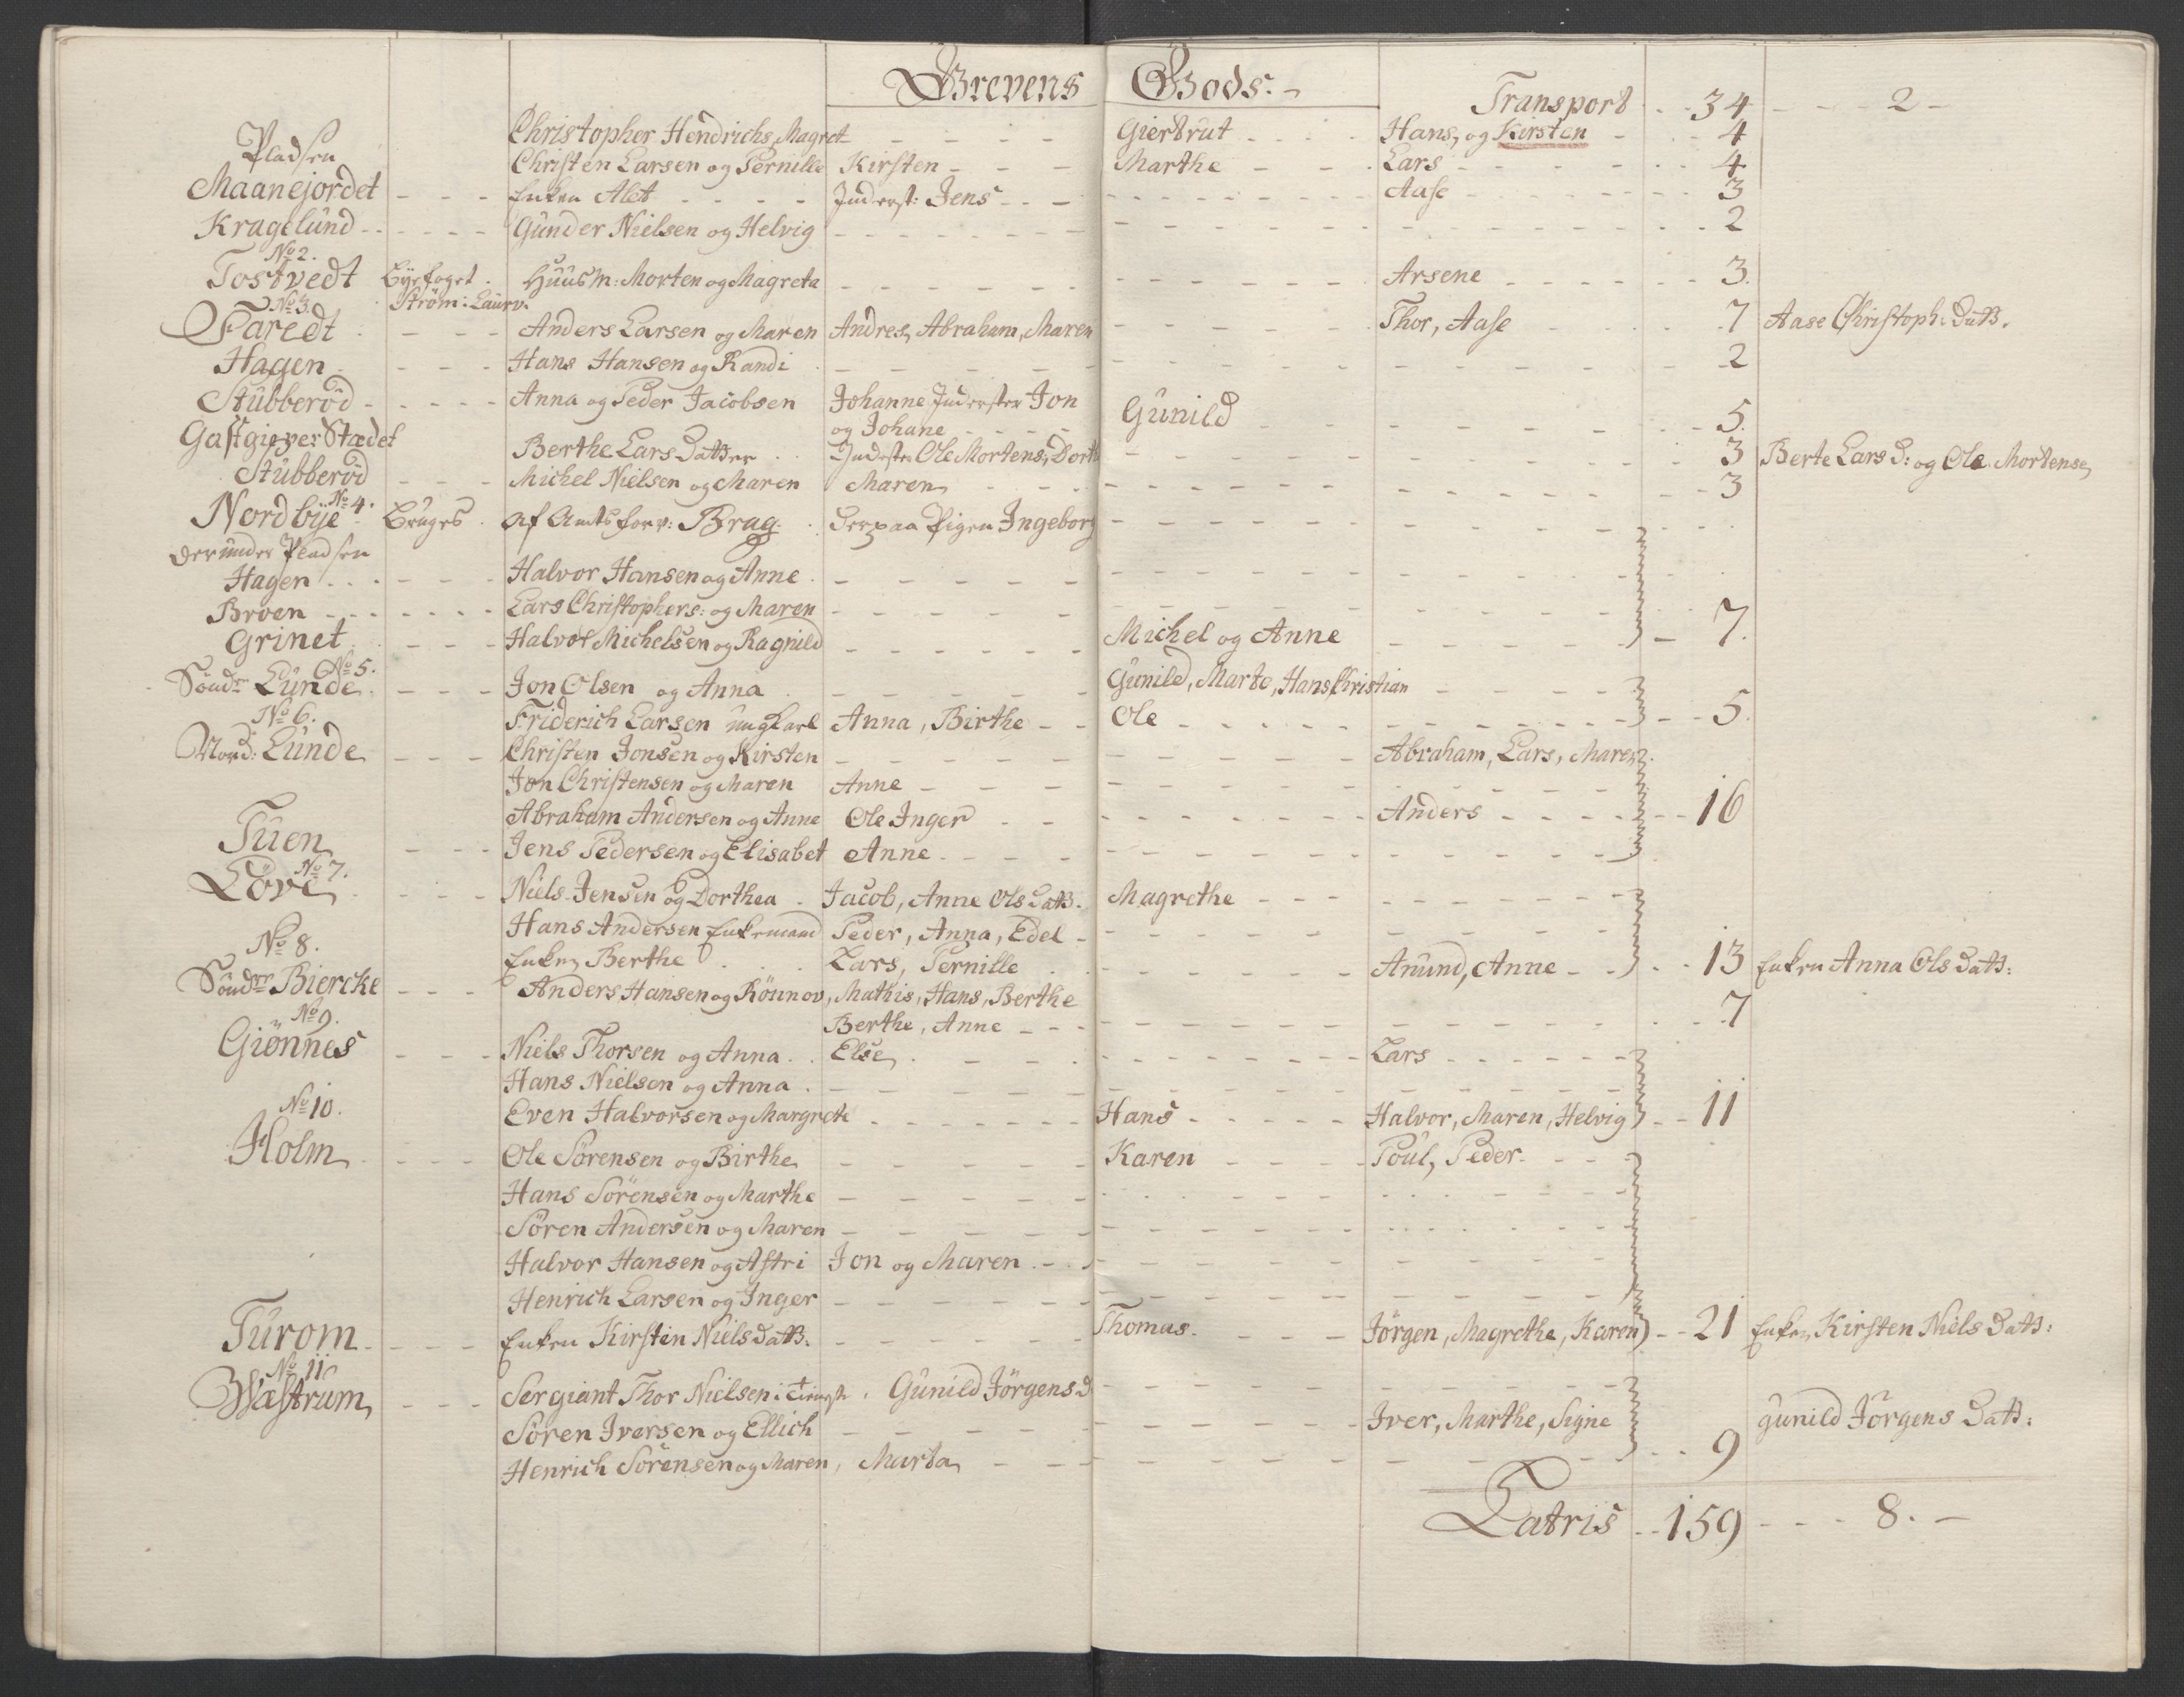 Grevens Gods.
Transport 34 2
Christopher Hendrichs, Magret Giertrut Hans, og Kirsten 4
Pladsen Christen Larsen og Pernille Kirsten Marthe Lars 4
Maanejordet Enken Alet Inderst: Jens Aase 3
Kragelund Gunder Nielsen og Helvig 2
No 2.
Tostvedt Byefoget Huusm: Morten og Magreta Arsene 3.
No 3. Ström: Laurv.
Faredt Anders Larsen og Maren Andres, Abraham, Maren Thor, Aase 7 Aase Christoph: Datt.
Hagen Hans Hansen og Randi 2
Stubberöd Anna og Peder Jacobsen Johanne Inderster Jon Gunild 5.
og Johane
Gastgiever Stædet Berthe Lars Datter Inderster Ole Mortens, Dorth 3 Berte Lars D: og Ole Mortensen
Stubberöd Michel Nielsen og Maren Maren 3
No 4.
Nordbÿe Bruges af Amtsforv: Brag. Derpaa Pigen Ingeborg
Derunder Pladsen
Hagen Halvor Hansen og Anne
Broen Lars Christophers: og Maren
Grinet Halvor Michelsen og Ragnild Michel og Anne 7.
No 5.
Sönder Lunde Jon Olsen og Anna Gunild, Marte, Hans Christian
No 6. Friderich Larsen ungkarl Anna, Birthe Ole 5.
Nord: Lunde Christen Jonsen og Kirsten Abraham, Lars, Maren
Jon Christensen og Maren Anne
Abraham Andersen og Anne Ole Inger Anders 16
Tuen Jens Pedersen og Elisabet Anne
No 7.
Löve Niels Jensen og Dorthea Jacob, Anne Ols Datt. Magrethe
Hans Andersen Enkemand Peder, Anna, Edel
No 8. Enken Berthe Lars, Pernille Anund, Anne 13 Enken Anna Ols Datt:
Sönder Biercke Anders Hansen og Rönnov, Mathis, Hans, Berthe
Berthe, Anne 7
No 9.
Giönnes Niels Thorsen og Anna Else Lars
Hans Nielsen og Anna
No 10. Even Halvorsen og Margrete Hans Halvor, Maren, Helvig 11
Holm Ole Sörensen og Birthe Karen Poul, Peder
Hans Sörensen og Marthe
Sören Andersen og Maren
Halvor Hansen og Astri Jon og Maren
Henrich Larsen og Inger
Turom Enken Kirsten Niels Datt. Thomas Jörgen, Magrethe, Karen 21 Enken Kirsten Niels Datt:
No 11
Wæstrum Sergiant Thor Nielsen i Gunild Jörgens D
Sören Iversen og Ellich Iver, Marthe, Signe gunild Jörgens Datt:
Henrich Sörensen og Maren, Marta 9
Latris 159 8.